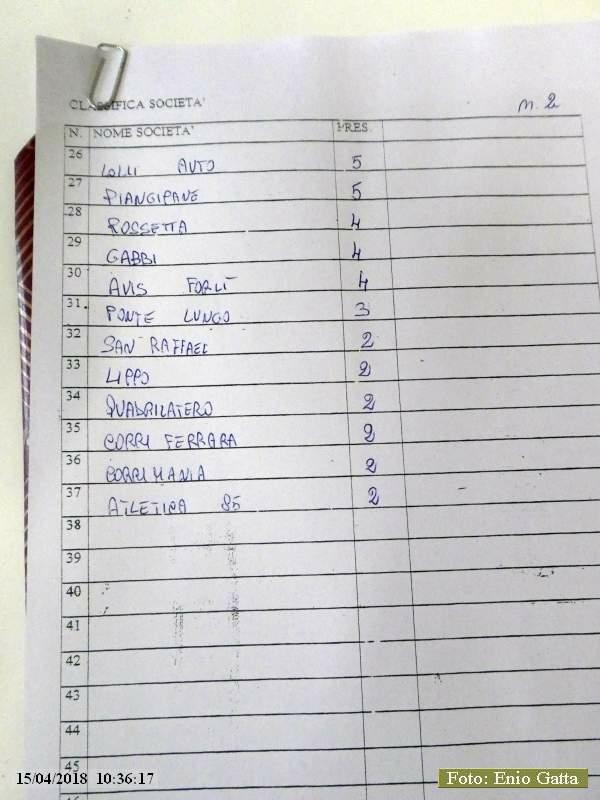 CLASSIFICA SOCIETA'
N. 2
N. NOME SOCIETA' PRES.
26 LOLLI AUTO 5
27 PIANGIPANE 5
28 ROSSETTA 4
29 GABBI 4
30 AVIS FORLÌ 4
31. PONTE LUNGO 3
32 SAN RAFFAEL 2
33 LIPPO 2
34 QUADRILATERO 2
35 CORRI FERRARA 2
36 CORRIMANIA 2
37 ATLETICA 85 2
38
39
40
41
42
43
44
45
15/04/2018 10:36:17
Foto: Enio Gatta